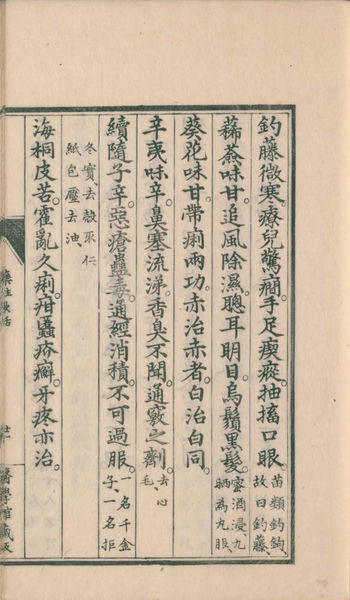 釣藤微寒。療兒驚癇。手足瘈瘲。抽搐口眼。苗類釣鉤、故曰釣藤、
蒓薟味甘。追風除濕。聰耳明目。烏鬚黑髮。蜜酒浸、九晒為丸服、
葵花味甘。帶痢兩功。赤治赤者。白治白同。
辛夷味辛。鼻塞流涕。香臭不聞。通竅之劑。去心毛
續隨子辛。惡瘡蠱毒。通經消積。不可過服。一名千金子、一名拒
冬實去殼取仁紙包壓去油
海桐皮苦。霍亂久痢。疳䘌疥癬。牙疼亦治。